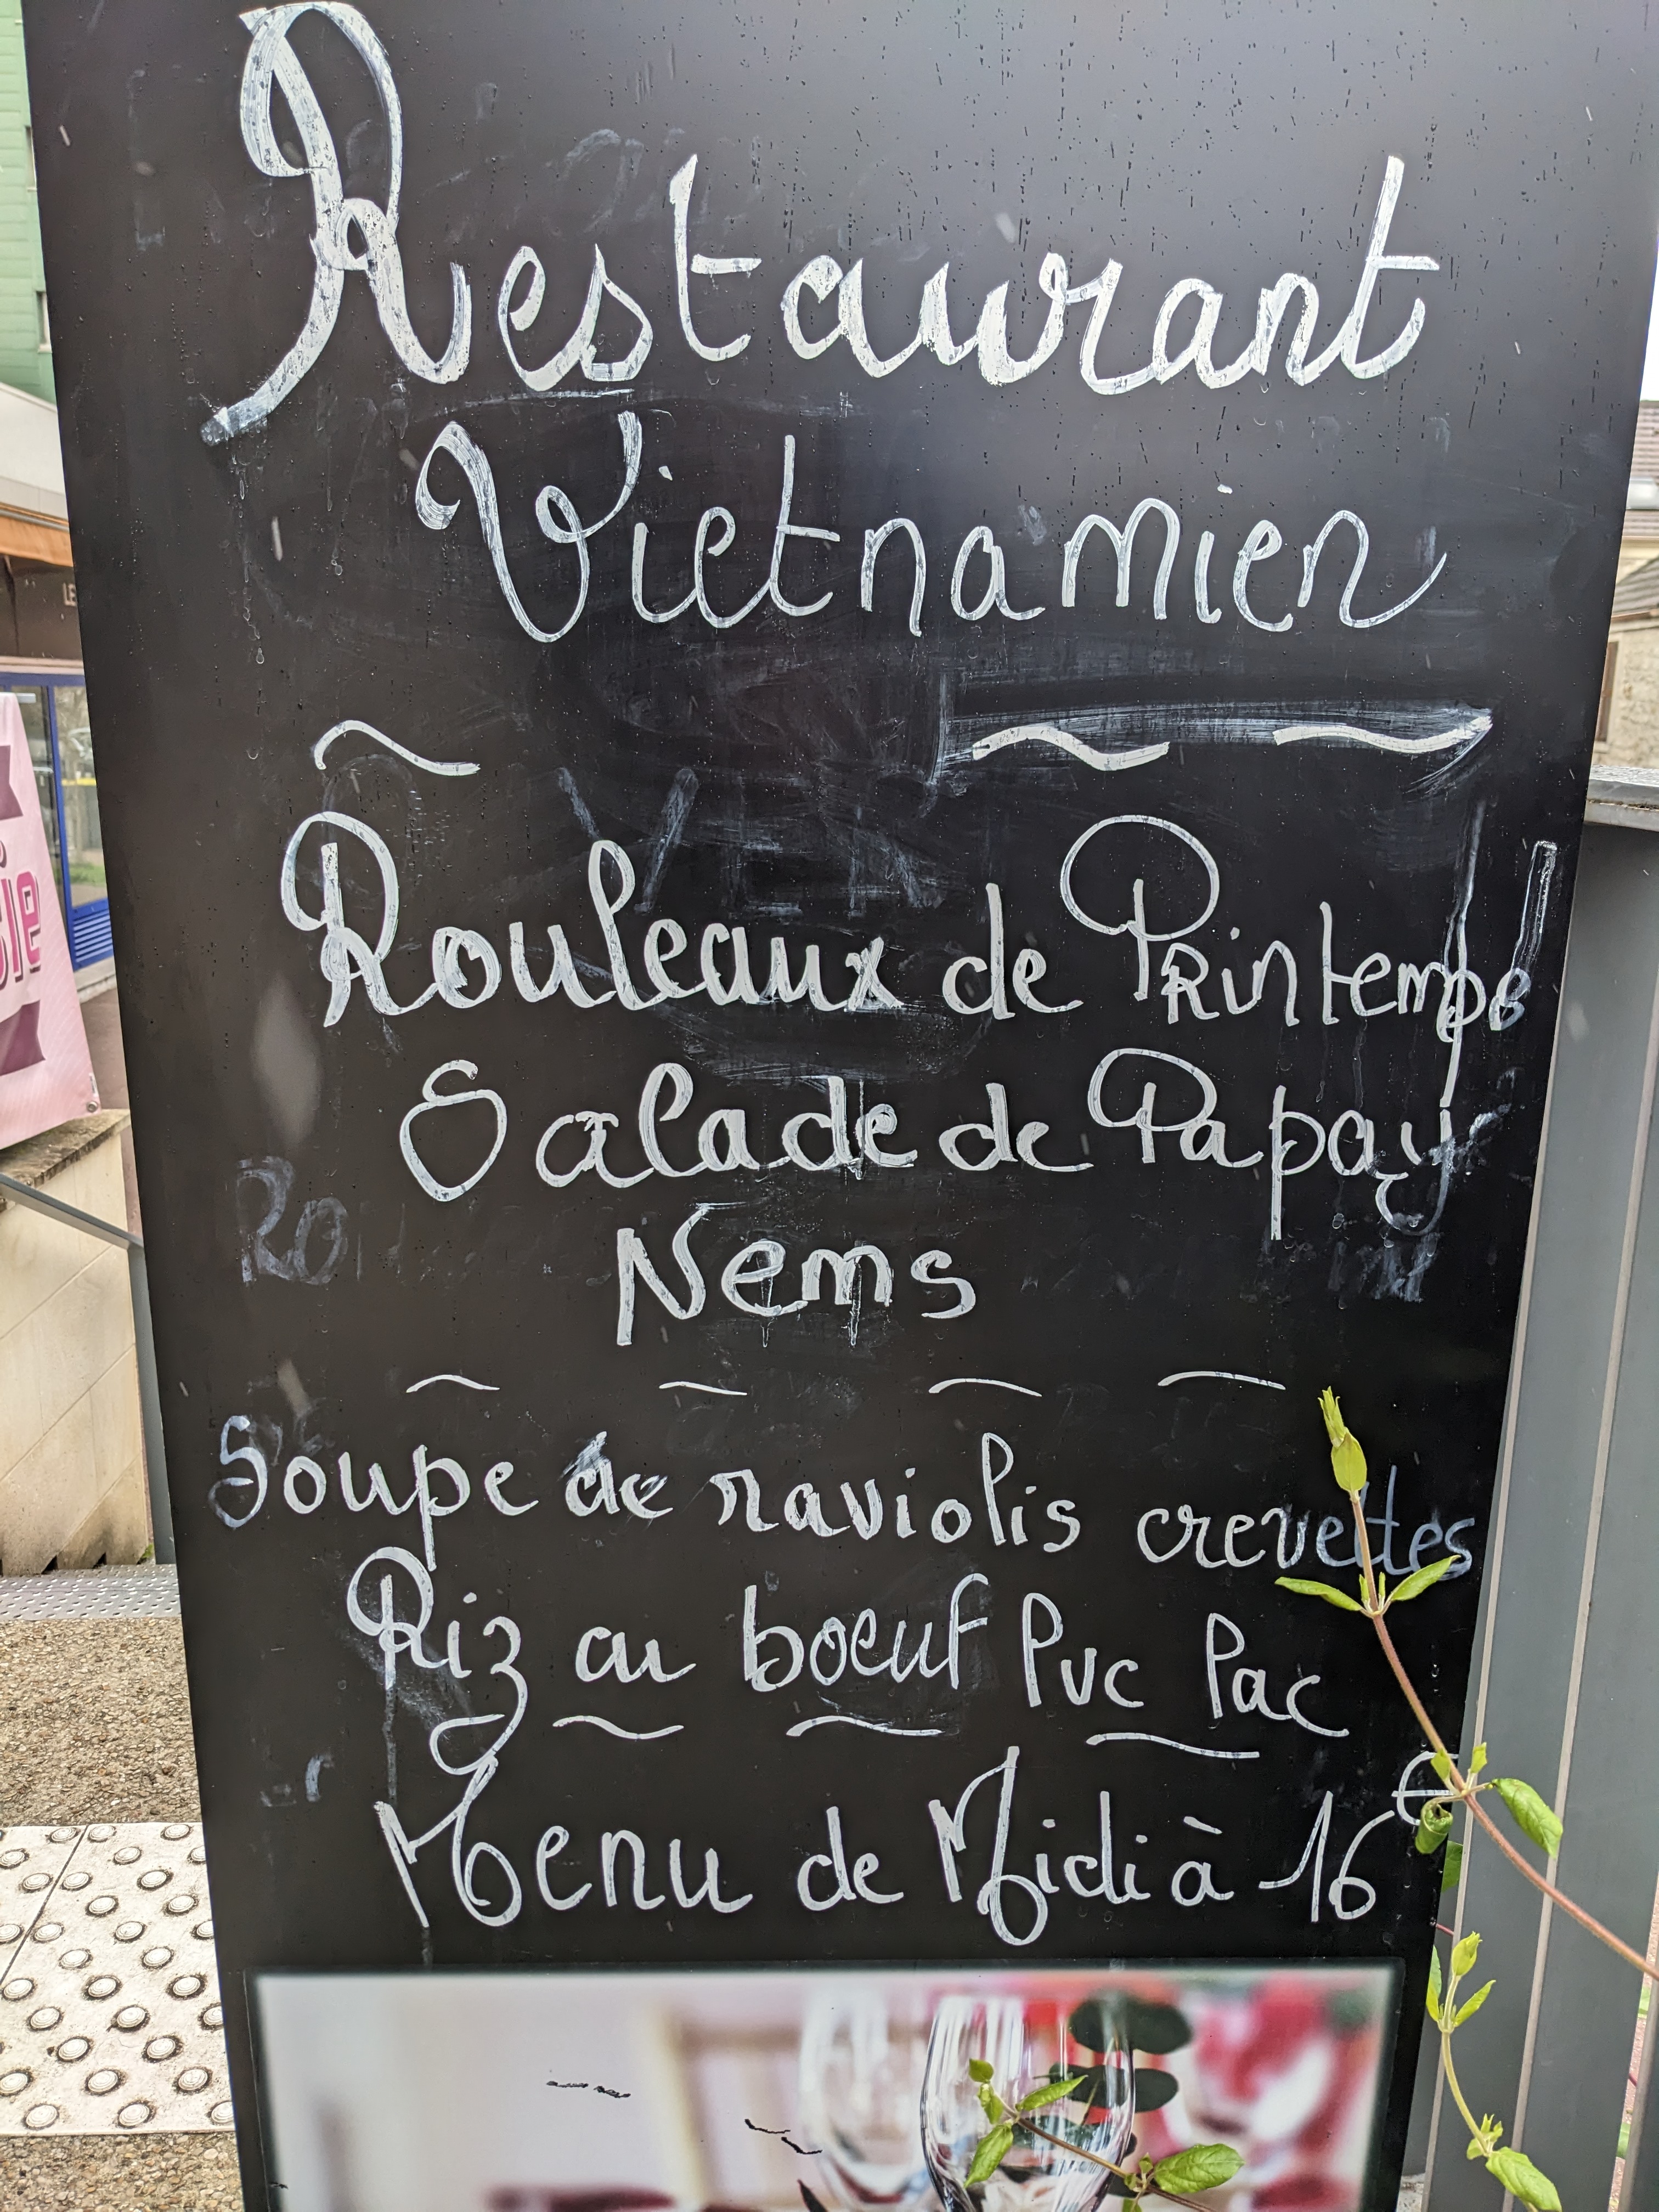 Restaurant
Vietnamien
Rouleaux de Printemps
Salade de Papay
Nems
Soupe de raviolis crevettes
Riz au boeuf Puc Pac
Menu de Midi à 16€
LE